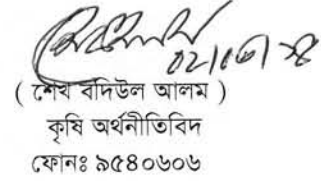 ( শেখ বদিউল আলম )
কৃষি অর্থনীতিবিদ
ফোনঃ ৯৫৪০৬০৬